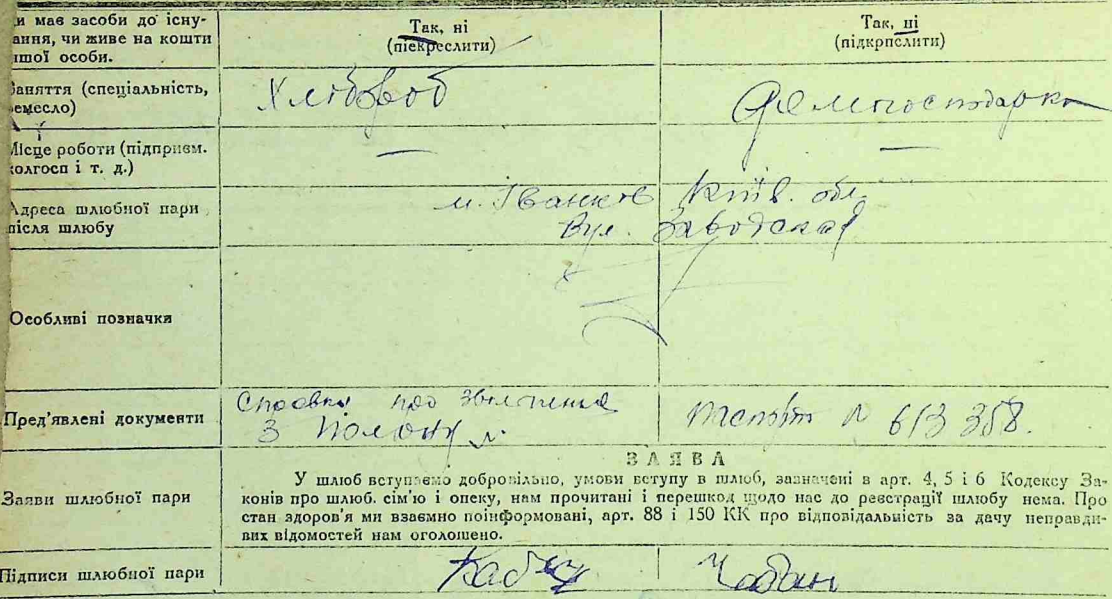 ди має засоби до існу-
ання, чи живе на кошти
ншої особи.
Так, ні
(піекреслити)
Так, ні
(підкрпслити)
Заняття (спеціальність,
ремесло)
Хлібороб
Домогосподарка
Місце роботи (підприєм.
колгосп і т. д.)
—
—
Адреса шлюбної пари
після шлюбу
м. Іванків Київ. обл.
Вул. Заводская
Особливі позначки
Пред'явлені документи
Справка про звільнення
з полону
Паспорт № 613 358.
ЗАЯВА
Заяви шлюбної пари
У шлюб вступаємо добровільно, умови вступу в шлюб, зазначені в арт. 4, 5 і 6 Кодексу За-
конів про шлюб. сім'ю і опеку, нам прочитані і перешкод щодо нас до реєстрації шлюбу нема. Про
стан здоров'я ми взаємно поінформовані, арт. 88 і 150 КК про відповідальність за дачу неправди-
вих відомостей нам оголошено.
Підписи шлюбної пари
Чабан